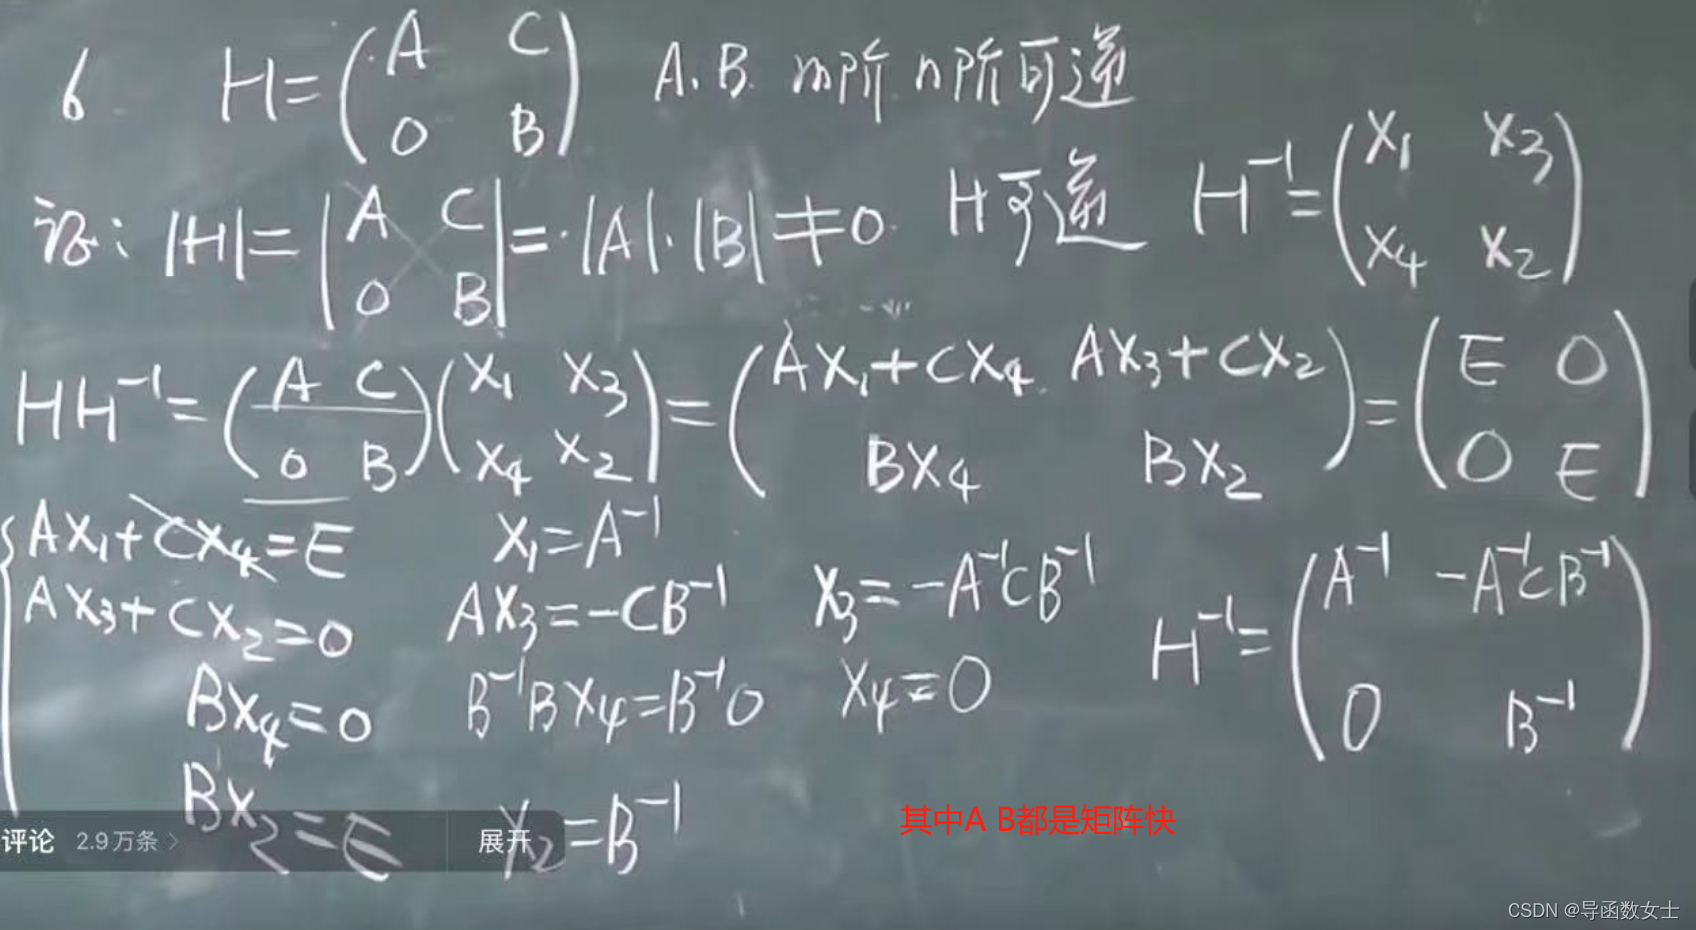 6 H=(A C
0 B) A.B. m阶 n阶可逆
证: |H|=|A C
0 B|=·|A|·|B|≠0 H可逆 H⁻¹=(X₁ X₃
X₄ X₂)
HH⁻¹=(A C
0 B)(X₁ X₃
X₄ X₂)=(AX₁+CX₄ AX₃+CX₂
BX₄ BX₂)=(E O
O E)
AX₁+CX₄=E X₁=A⁻¹
AX₃+CX₂=0 AX₃=-CB⁻¹ X₃=-A⁻¹CB⁻¹
BX₄=0 B⁻¹BX₄=B⁻¹0 X₄=0
BX₂=E X₂=B⁻¹
H⁻¹=(A⁻¹ -A⁻¹CB⁻¹
0 B⁻¹)
其中A B都是矩阵快
评论 2.9万条 > 展开
CSDN @导函数女士